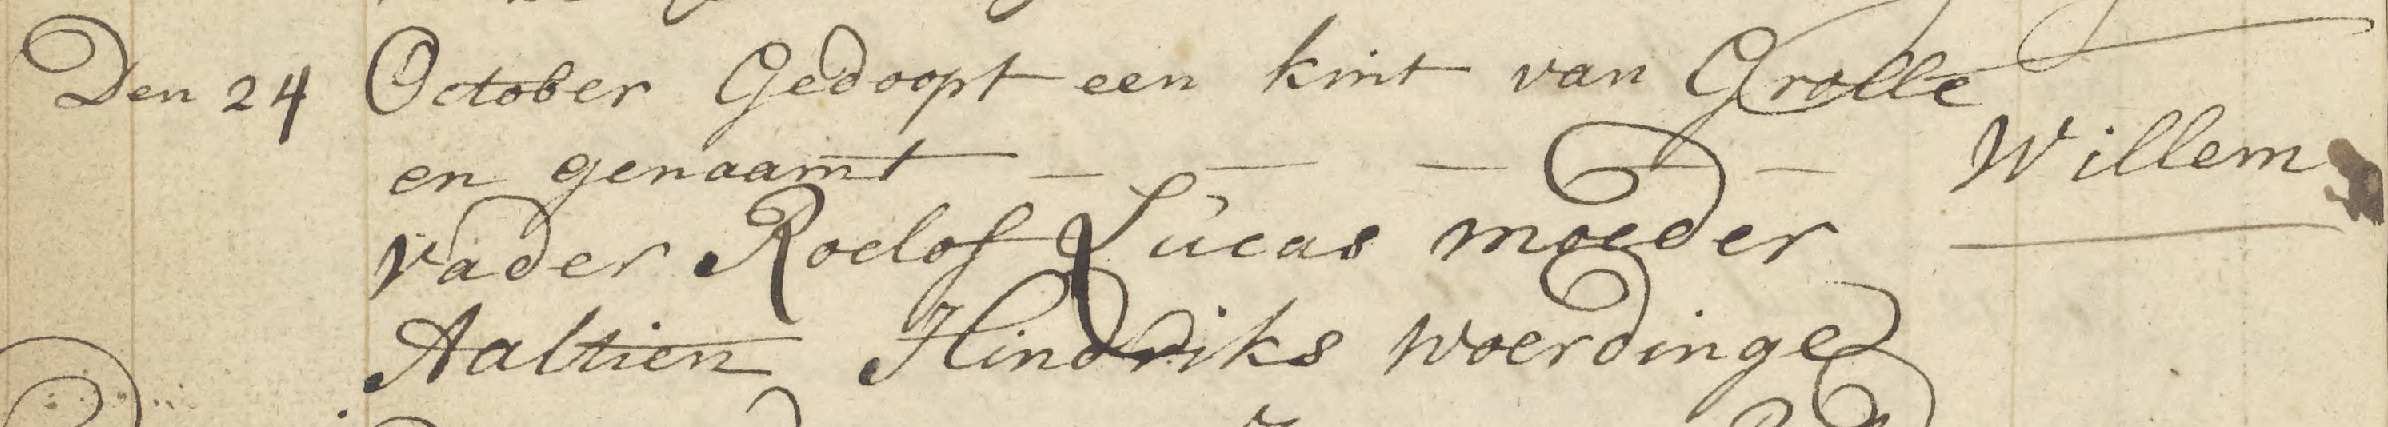 Den 24 October Gedoopt een kint van Grolle
en genaamt — — — — — Willem
vader Roelof Lúcas moeder
Aaltien Hindriks Woerdinge